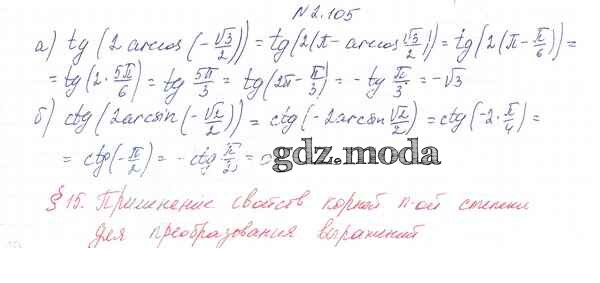 N 2.105
а) tg (2 arccos (-√3/2)) = tg(2(π - arccos √3/2)) = tg(2(π - π/6)) =
= tg(2·5π/6) = tg 5π/3 = tg(2π - π/3) = -tg π/3 = -√3
б) ctg(2arcsin(-√2/2)) = ctg(-2arcsin √2/2) = ctg(-2·π/4) =
= ctg(-π/2) = -ctg π/2 =
gdz.moda
§ 15. Применение свойств корней n-ой степени
для преобразования выражений